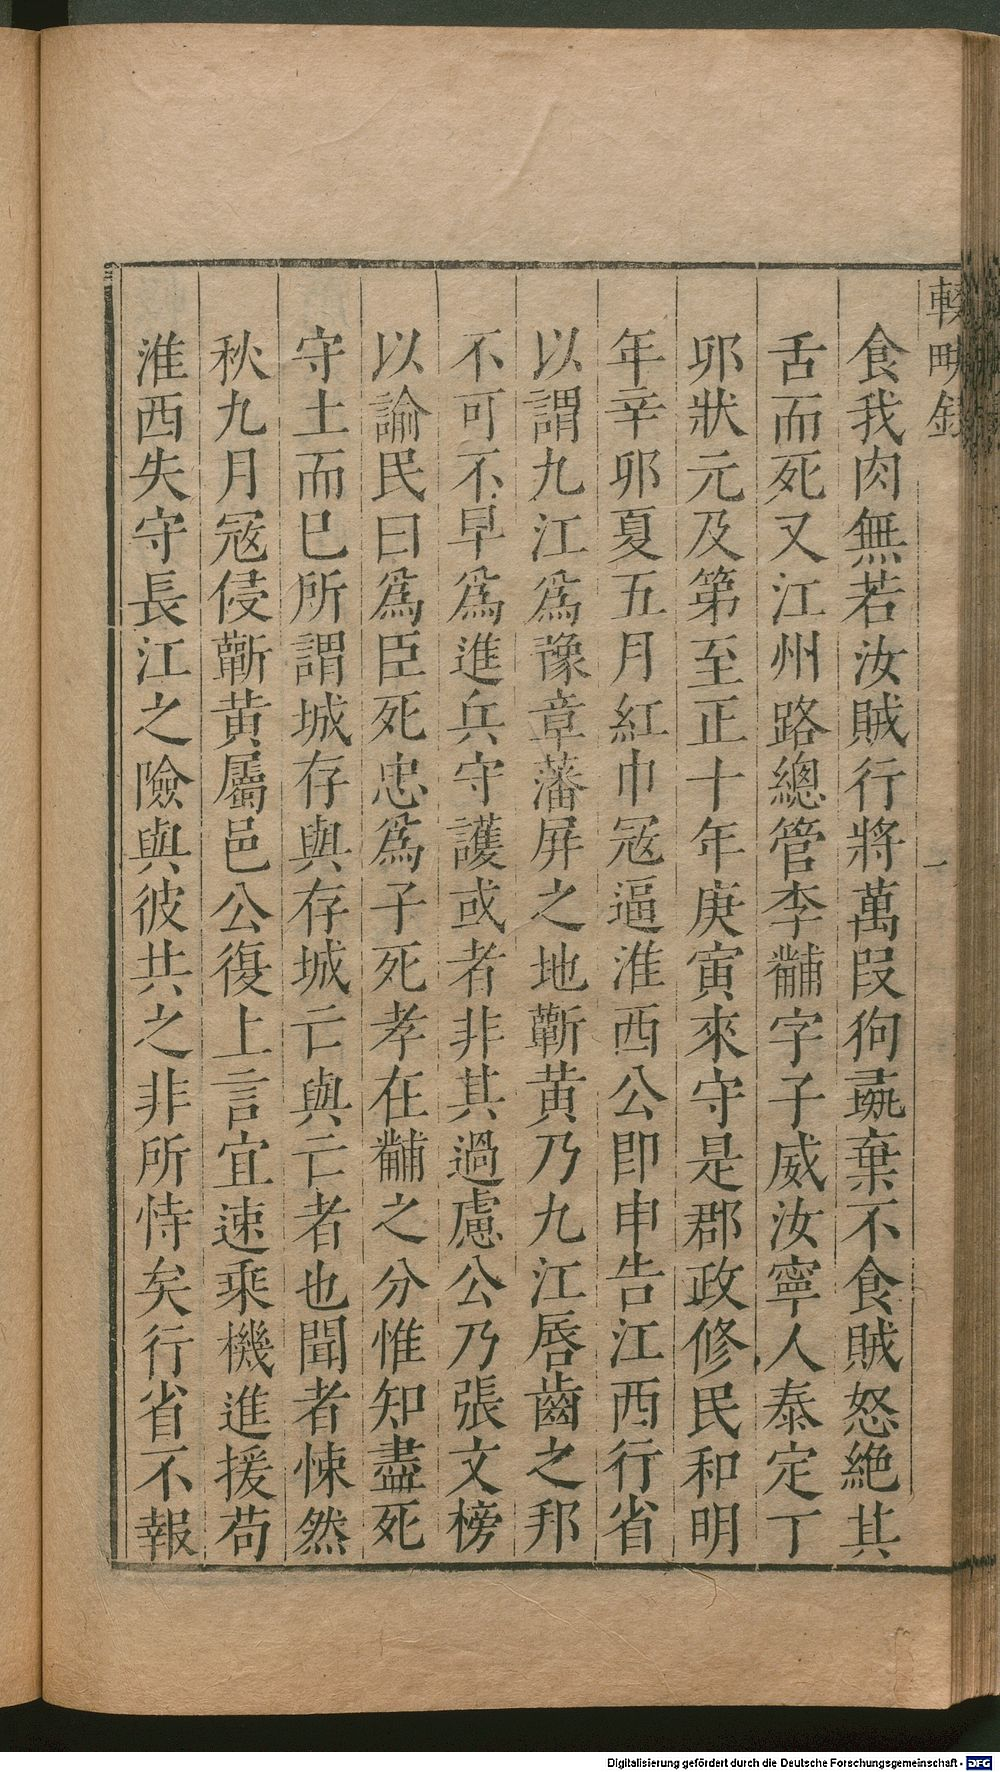 輟畊錄
一
食我肉無若汝賊行將萬段狗彘棄不食賊怒絶其
舌而死又江州路總管李黼字子威汝寧人泰定丁
卯狀元及第至正十年庚寅來守是郡政修民和明
年辛卯夏五月紅巾冦逼淮西公即申告江西行省
以謂九江爲豫章藩屏之地蘄黄乃九江唇齒之邦
不可不早爲進兵守護或者非其過慮公乃張文榜
以諭民曰爲臣死忠爲子死孝在黼之分惟知盡死
守土而已所謂城存與存城亡與亡者也聞者悚然
秋九月冦侵蘄黄屬邑公復上言宜速乘機進援苟
淮西失守長江之險與彼共之非所恃矣行省不報
Digitalisierung gefördert durch die Deutsche Forschungsgemeinschaft - DFG